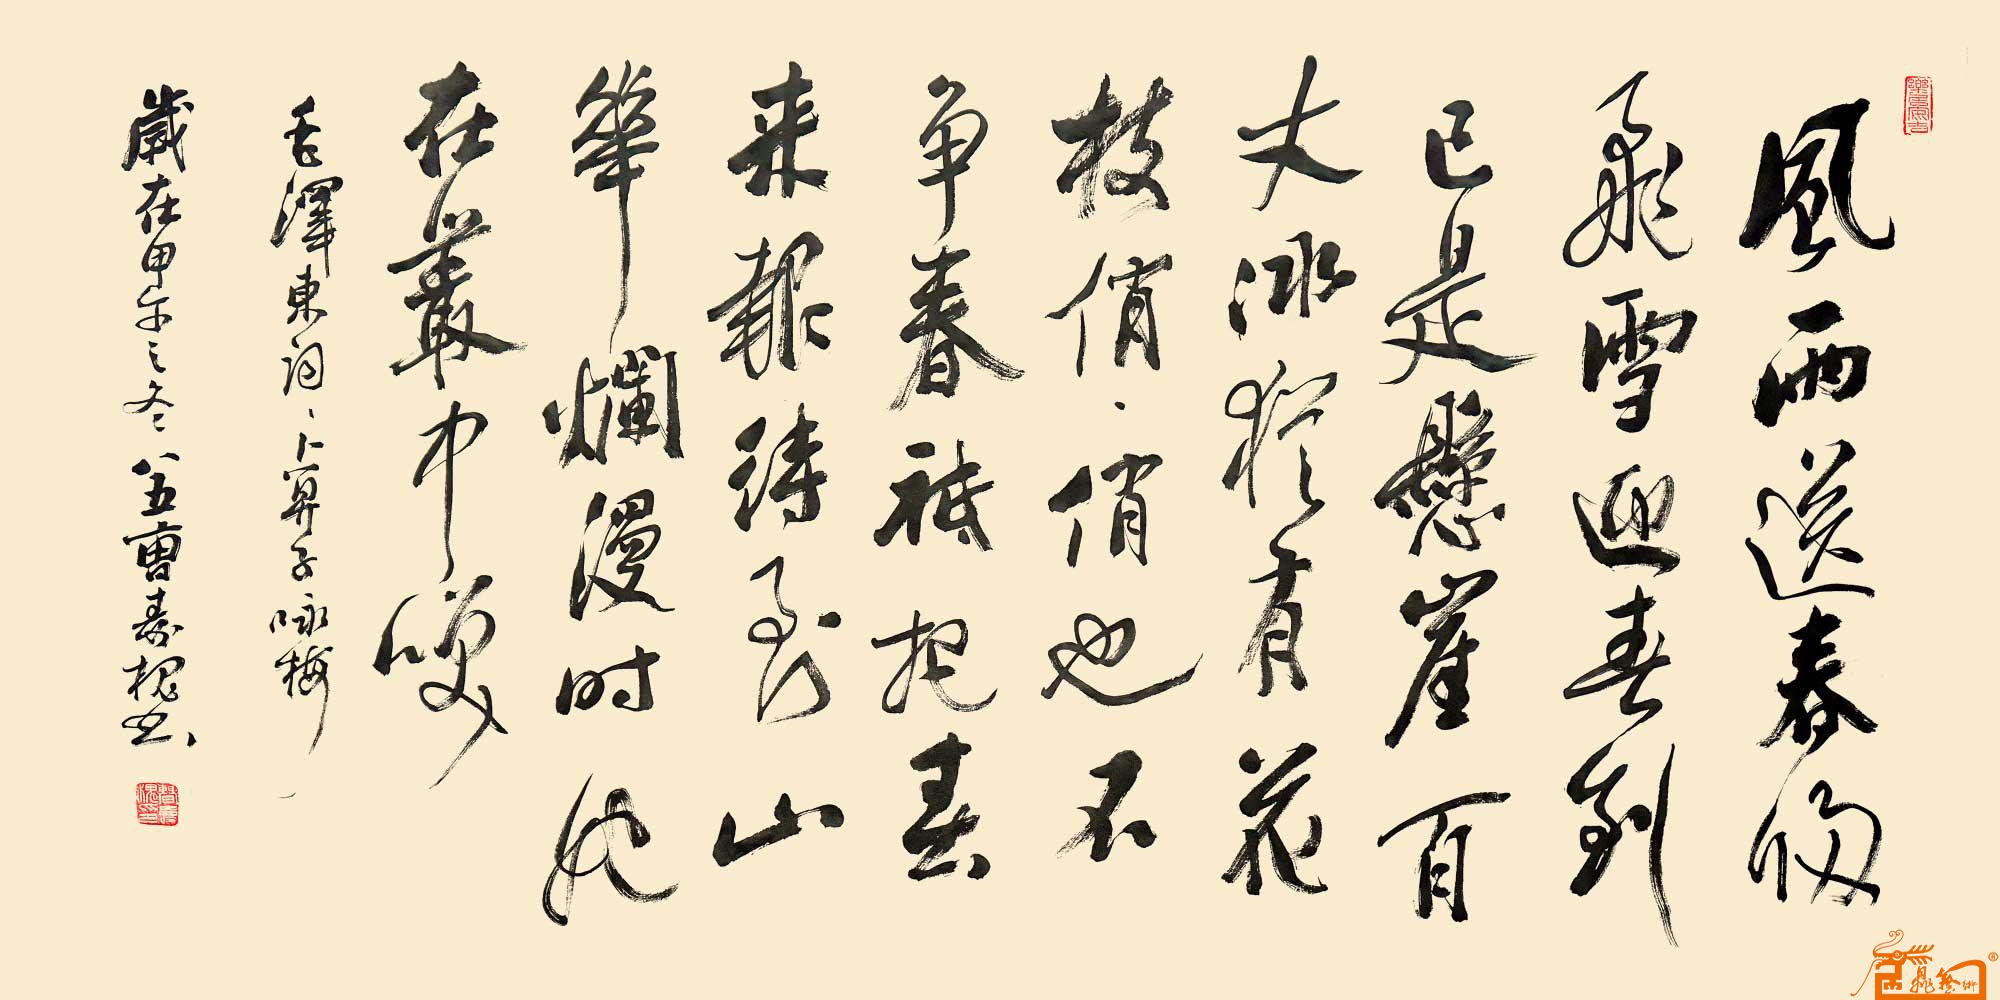 風雨送春归
飛雪迎春到
已是懸崖百
丈冰犹有花
枝俏俏也不
争春祗把春
来報待到山
華爛漫时她
在叢中笑
毛澤東词卜算子咏梅
歲在甲午之冬八五曹寿槐书